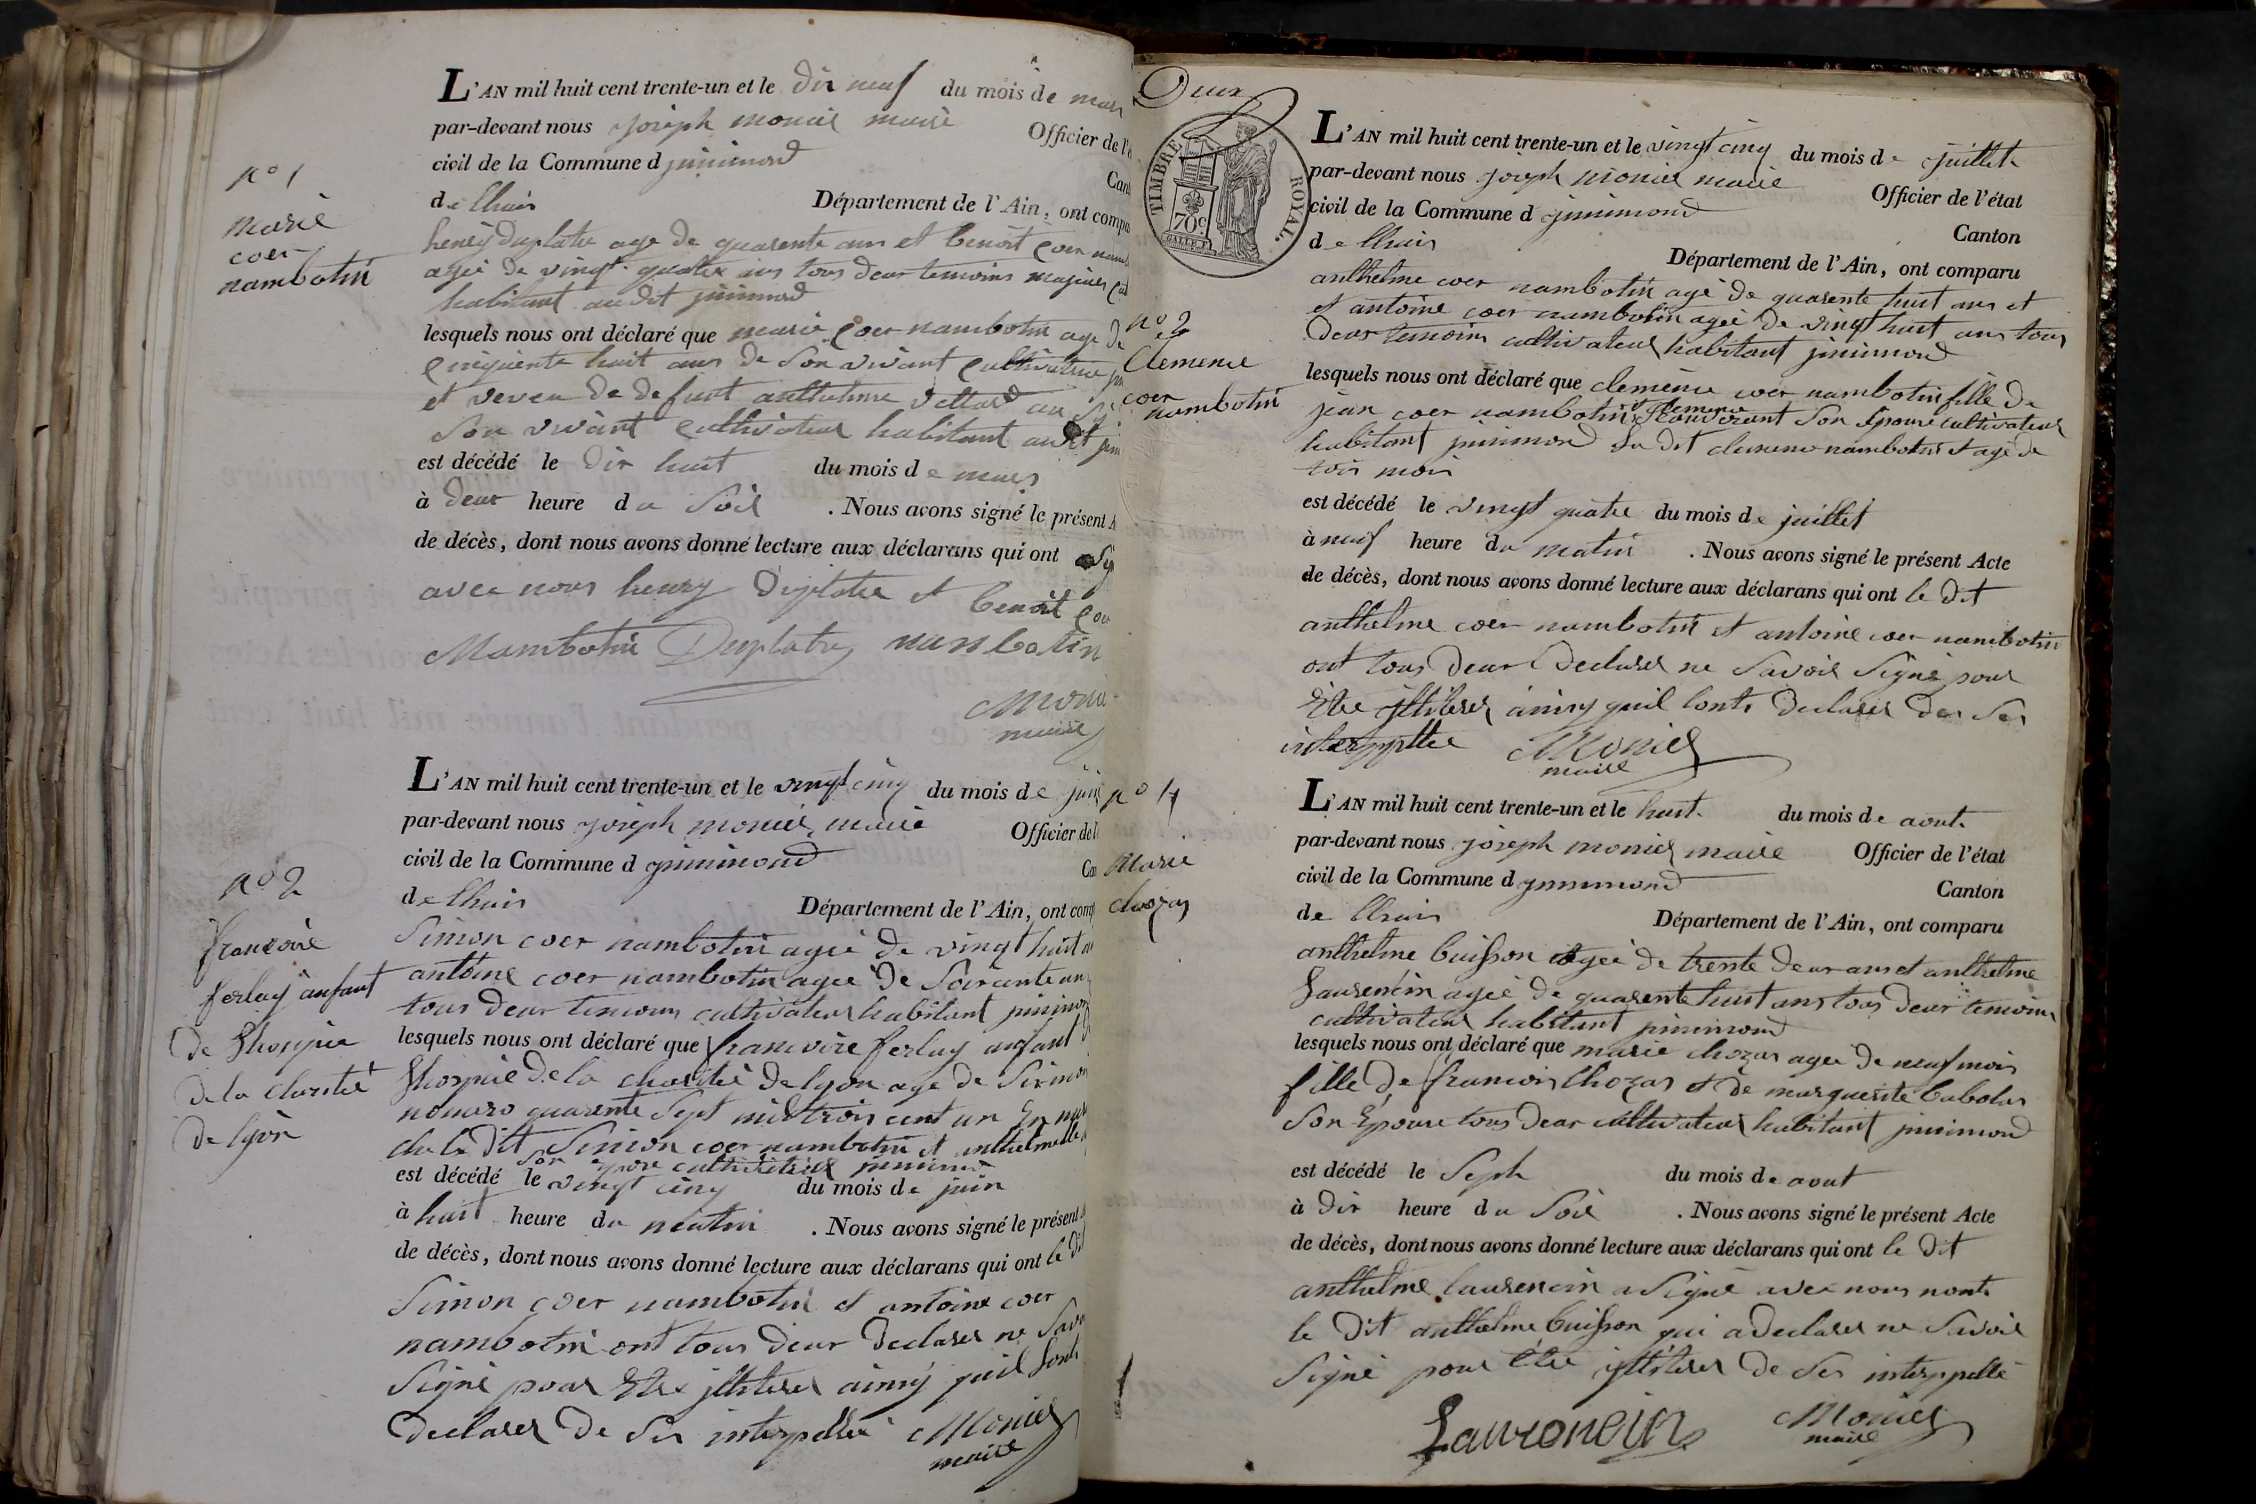 L'AN mil huit cent trente-un et le dix neuf du mois de mars
par-devant nous joseph monier maire Officier de l'é
civil de la Commune d jnnimond Cant
de lhuis Département de l'Ain, ont compa
henry duplatre age de quarente ans et benoit coer namb
agée de vingt quatre ans tous deux temoins majeurs cult
habitant au dit jnnimond
lesquels nous ont déclaré que marie coer nambotin age de
cinquente huit ans de son vivant cultivatrice
et veveu de defunt anthelme vettard
son vivant cultivateur habitant audit jnn
est décédé le dix huit du mois de mars
à deux heure du soir . Nous avons signé le présent A
de décès, dont nous avons donné lecture aux déclarans qui ont sig
avec nous henry duplatre et benoit coer
Nambotin Duplatre nanbotin
Monier
maire
n° 1
marie
coer
nambotin
L'AN mil huit cent trente-un et le vingt cinq du mois de juin
par-devant nous joseph monier maire Officier de l'
civil de la Commune d jnnimond Ca
de lhuis Département de l'Ain, ont comp
Simon coer nambotin agée de vingt huit an
antoine coer nambotin agée de soixante an
tous deux temoins cultivateur habitant jnnimond
lesquels nous ont déclaré que francoise ferlay anfant de
lhospice de la charité de lyon age de six moi
nomero quarente sept mil trois cent un en nour
che le dit Simon coer nambotin et anthelmette
son epouse cultivateur jnnimond
est décédé le vingt cinq du mois de juin
à huit heure du matin . Nous avons signé le présent A
de décès, dont nous avons donné lecture aux déclarans qui ont le dit
Simon coer nambotin et antoine coer
nambotin ont tous deux declarer ne savoir
signé pour etre jlliterer ainsy quil lont
declarer de ser interpellé Monier
maire
n° 2
francoise
ferlay anfant
de lhospice
de la charité
de lyon
Deux
TIMBRE ROYAL.
70c.
L'AN mil huit cent trente-un et le vingt cinq du mois de juillet
par-devant nous joseph monier maire Officier de l'état
civil de la Commune d jnnimond Canton
de lhuis Département de l'Ain, ont comparu
anthelme coer nambotin agé de quarente huit ans et
et antoine coer nambotin agée de vingt huit ans tous
deux temoins cultivateur habitant jnnimond
lesquels nous ont déclaré que clemence coer nambotin fille de
jean coer nambotin et clemence son epouse cultivateur
habitant jnnimond la dit clemence nambotin et agé de
trois mois
est décédé le vingt quatre du mois de juillet
à neuf heure du matin . Nous avons signé le présent Acte
de décès, dont nous avons donné lecture aux déclarans qui ont le dit
anthelme coer nambotin et antoine coer nambotin
ont tous deux declarer ne savoir signé pour
etre jlliterer ainsy quil lont declarer de ser
interppellee Monier
maire
n° 2
Clemence
coer
nambotin
L'AN mil huit cent trente-un et le huit du mois de aout
par-devant nous joseph monier maire Officier de l'état
civil de la Commune d jnnimond Canton
de lhuis Département de l'Ain, ont comparu
anthelme buisson agée de trente deux ans et anthelme
laurencin agée de quarente huit ans tous deux temoins
cultivateur habitant jnnimond
lesquels nous ont déclaré que marie chozas agée de neuf mois
fille de francois chozas et de marguerite babolas
son epouse tous deux cultivateur habitant jnnimond
est décédé le Sept du mois de aout
à dix heure du soir . Nous avons signé le présent Acte
de décès, dont nous avons donné lecture aux déclarans qui ont le dit
anthelme laurencin a signé avec nous nont
le dit anthelme buisson qui a declarer ne savoir
signé pour etre jlliterer de ser interppellé
Laurencin Monier
maire
n° 4
Marie
chozas